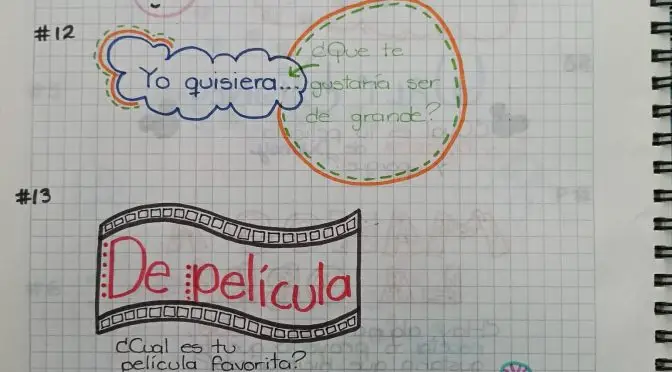 #12
Yo quisiera...
¿Que te
gustaría ser
de grande?
#13
De película
¿Cual es tu
película favorita?